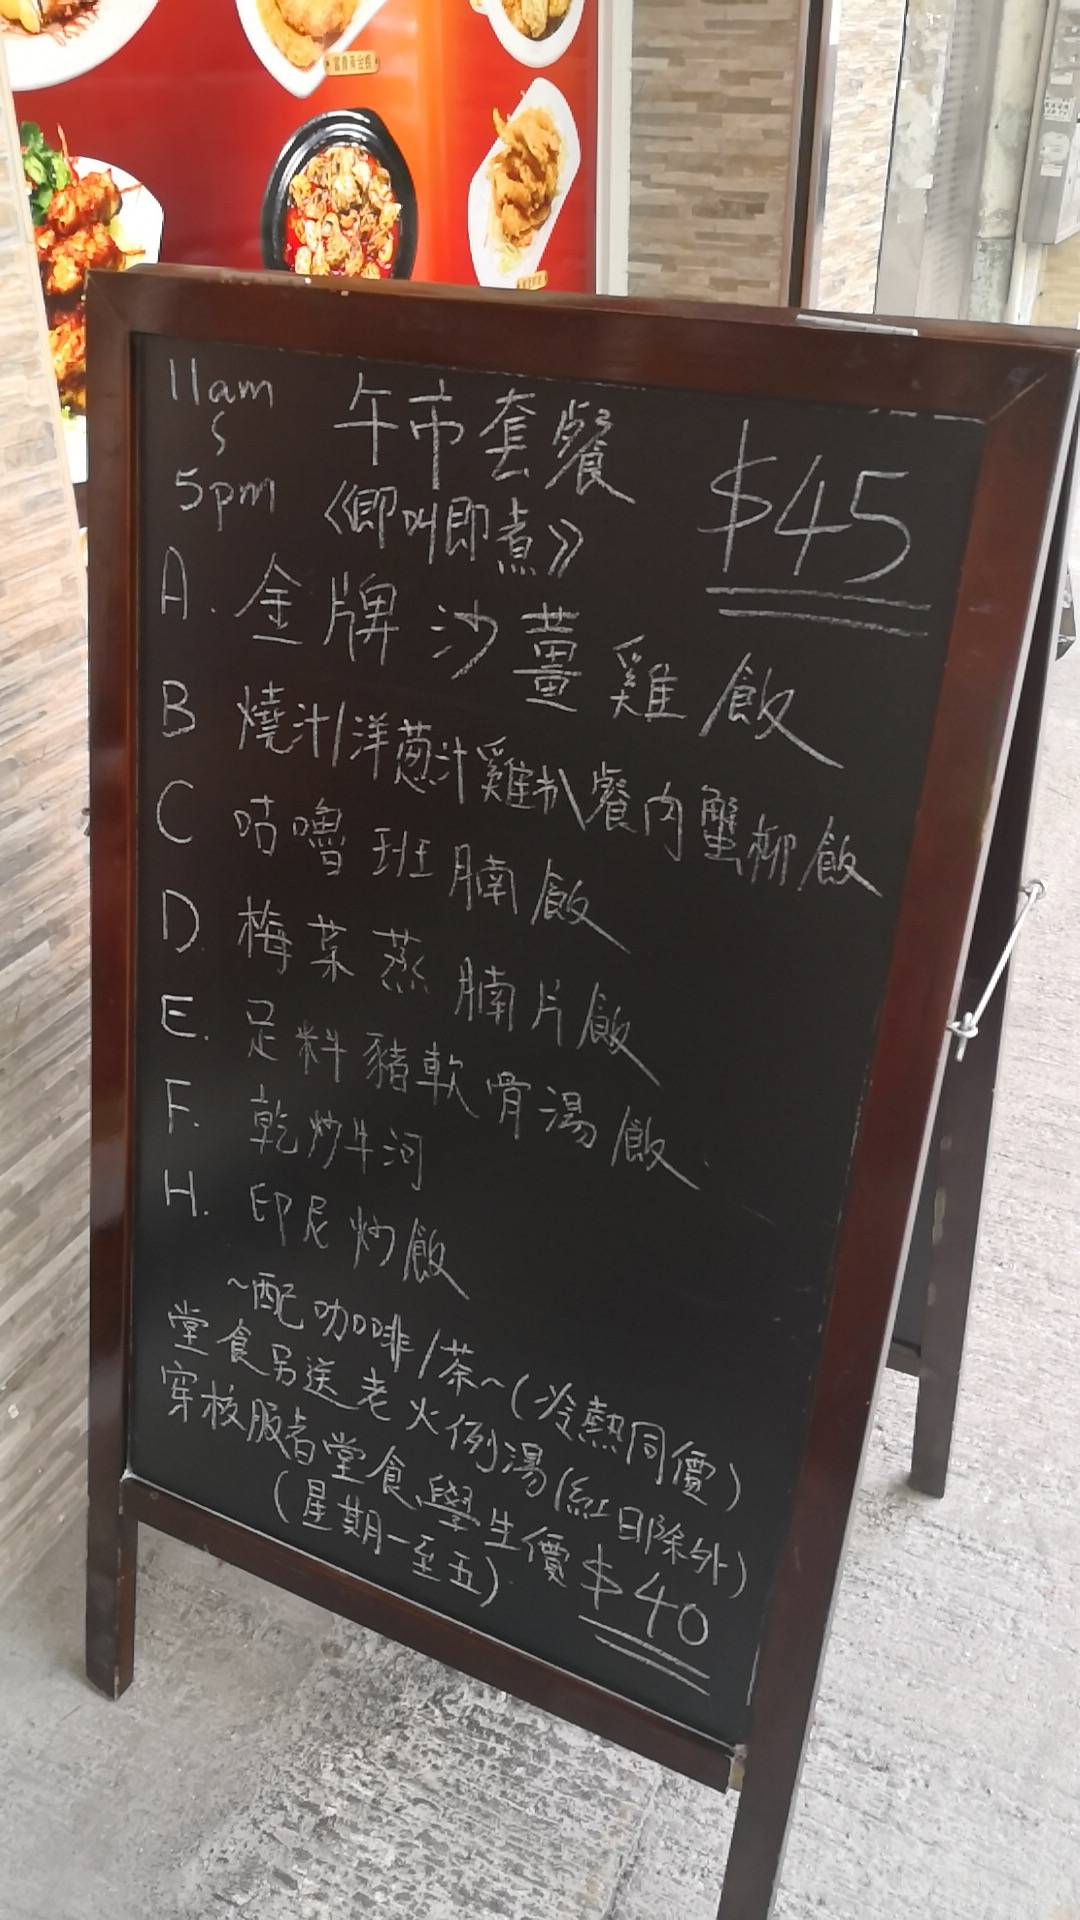 11am
5pm
午市套餐
《即叫即煮》
$45
A. 金牌沙薑雞飯
B 燒汁/洋蔥汁雞扒餐肉蟹柳飯
C 咕嚕班腩飯
D. 梅菜蒸腩片飯
E. 足料豬軟骨湯飯
F. 乾炒牛河
H. 印尼炒飯
~配咖啡/茶~(冷熱同價)
堂食另送老火例湯(紅日除外)
穿校服者堂食,學生價$40
(星期一至五)